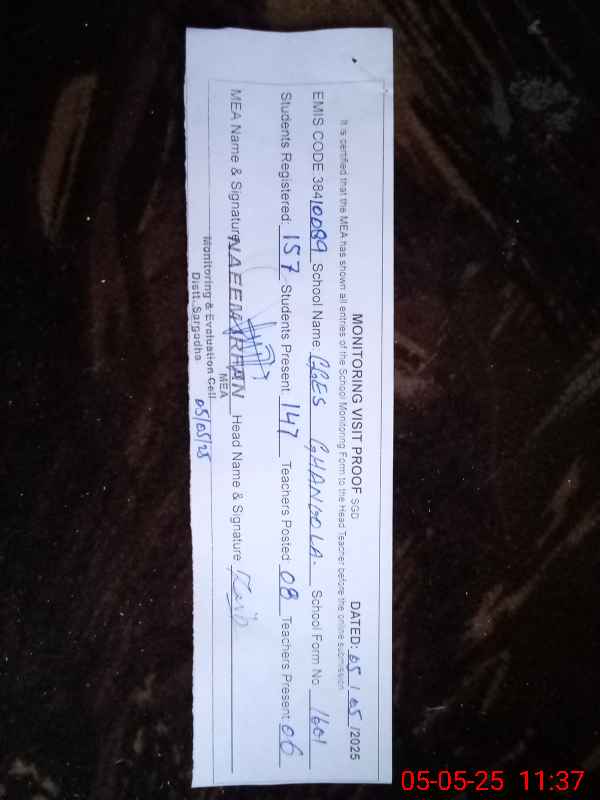 MONITORING VISIT PROOF SGD DATED: 05/05/2025
It is certified that the MEA has shown all entries of the School Monitoring Form to the Head Teacher before the online submission
EMIS CODE 38410089 School Name GGES GHANGOLA. School Form No 1601
Students Registered: 157 Students Present 147 Teachers Posted 08 Teachers Present 06
MEA Name & Signature NAEEM Head Name & Signature
MEA
Monitoring & Evaluation Cell
Distt. Sargodha
05/05/25
05-05-25 11:37